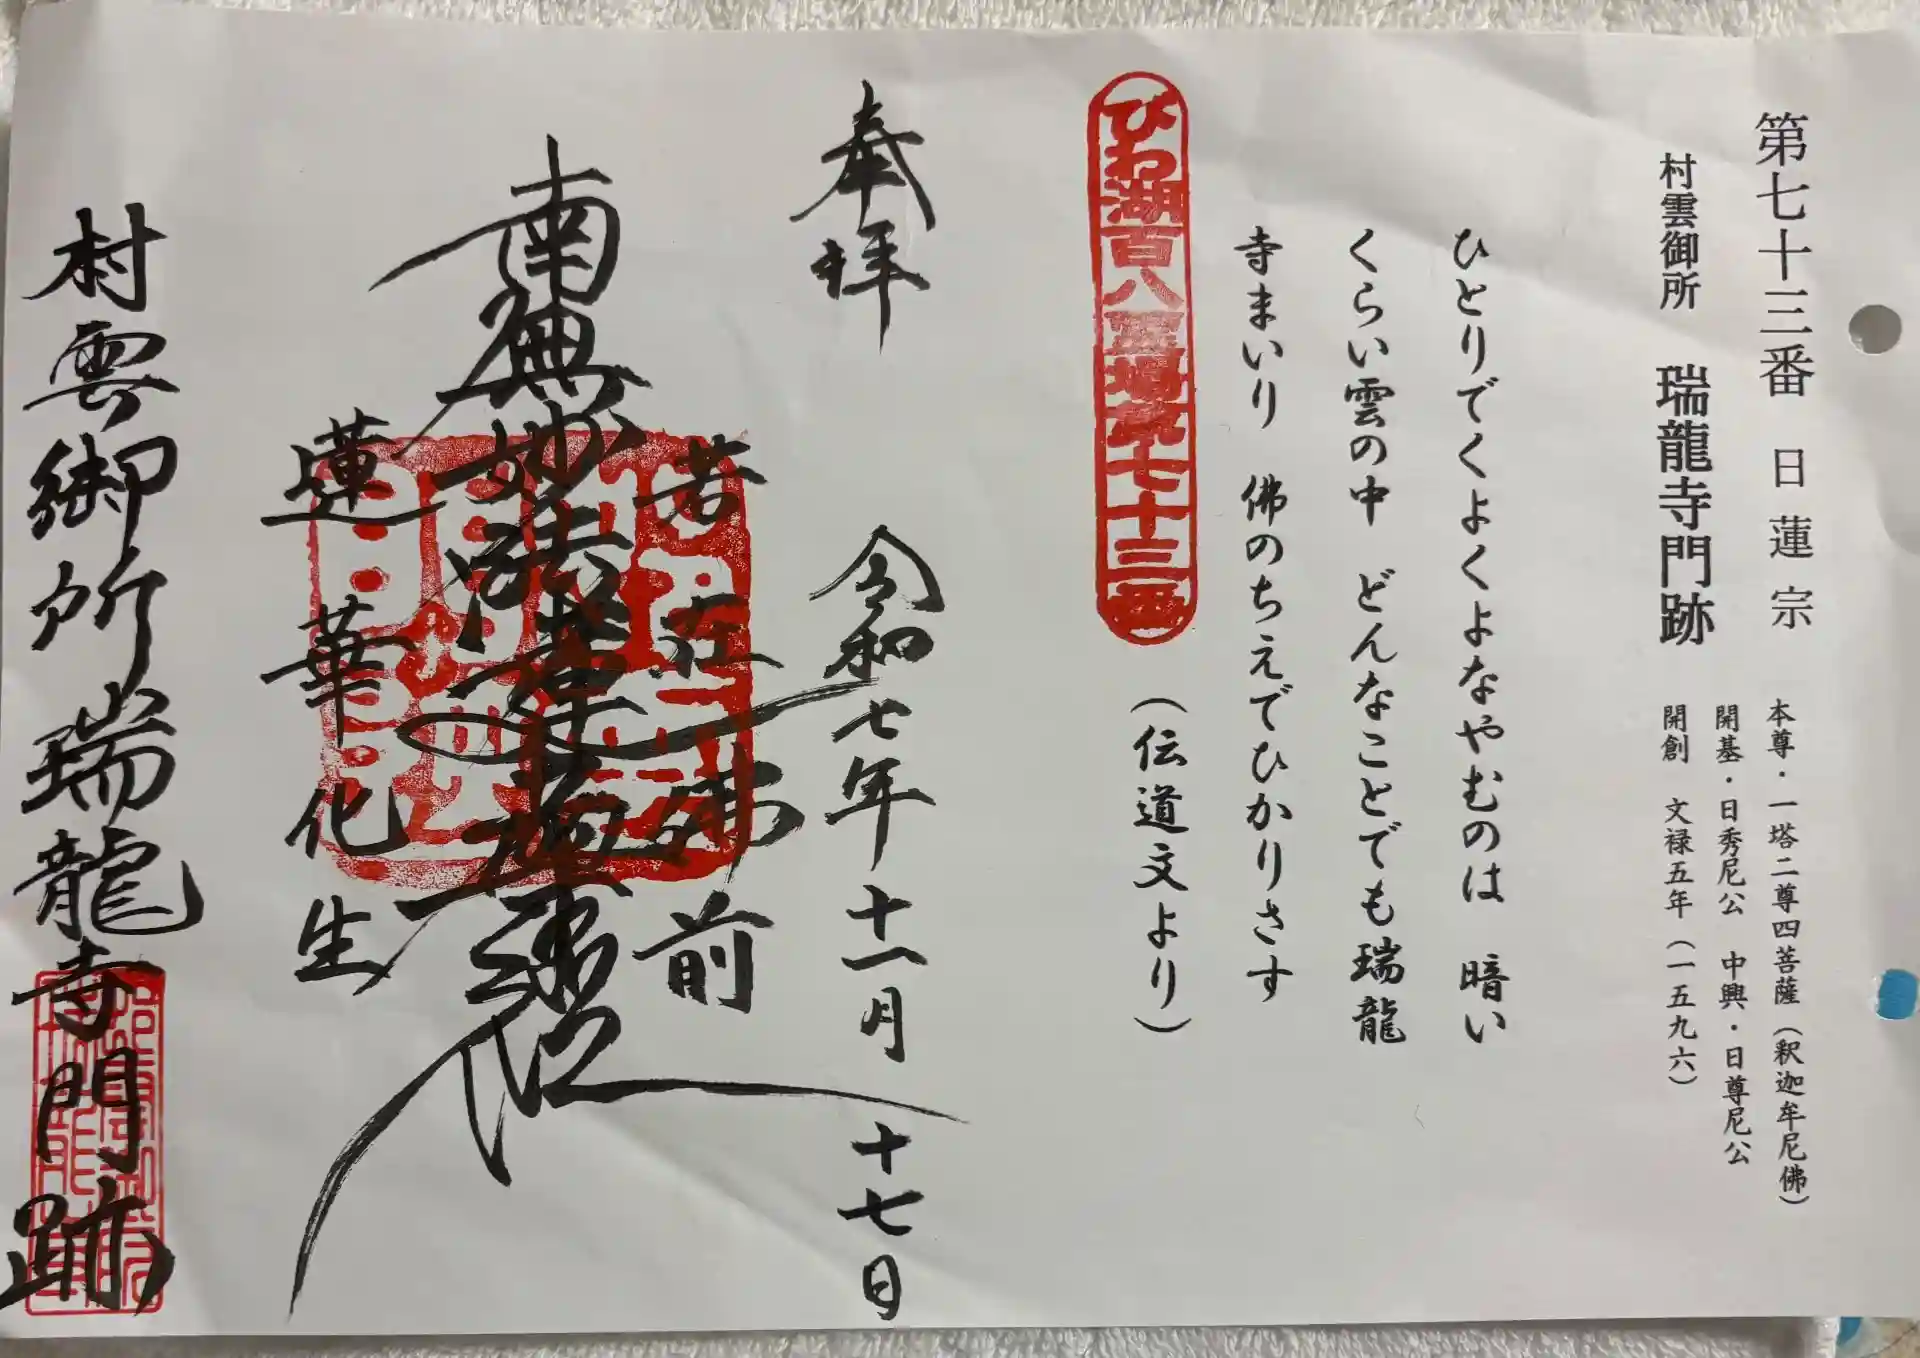 第七十三番 日蓮宗
本尊・一塔二尊四菩薩（釈迦牟尼佛）
開基・日秀尼公 中興・日尊尼公
村雲御所 瑞龍寺門跡
開創 文禄五年（一五九六）
ひとりでくよくよなやむのは 暗い
くらい雲の中 どんなことでも瑞龍
寺まいり 佛のちえでひかりさす
（伝道文より）
びわ湖百八霊場第七十三番
奉拝 令和七年十一月十七日
若在佛前
南無妙法蓮華経
蓮華化生
村雲御所瑞龍寺門跡